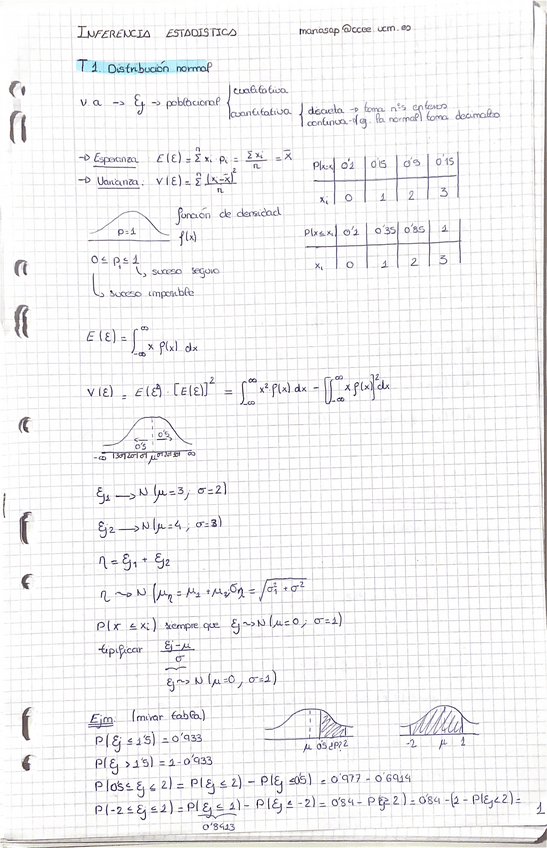 INFERENCIA ESTADISTICA manasap@ccee.ucm.es
T1. Distribución normal
v.a → ξ → poblacional { cualitativa
cuantitativa { discreta → toma nºs enteros
continua → (g. la normal) toma decimales
→ Esperanza E(ξ) = Σⁿ xᵢ pᵢ = Σxᵢ/n = x̄
→ Varianza: V(ξ) = Σⁿ (xᵢ-x̄)²/n
P(x=xᵢ) 0'1 0'15 0'5 0'15
xᵢ 0 1 2 3
P=1 función de densidad
f(x)
P(x≤xᵢ) 0'1 0'35 0'85 1
xᵢ 0 1 2 3
0 ≤ pᵢ ≤ 1
↳ suceso seguro
↳ suceso imposible
E(ξ) = ∫_{-∞}^{∞} x f(x) dx
V(ξ) = E(ξ²) - [E(ξ)]² = ∫_{-∞}^{∞} x² f(x) dx - [∫_{-∞}^{∞} x f(x)]² dx
0'5 0'5
-∞ μ ∞
ξ₁ → N(μ=3, σ=2)
ξ₂ → N(μ=4, σ=3)
η = ξ₁ + ξ₂
η ~> N(μη = μ₁ + μ₂, ση = √σ₁² + σ²
P(x ≤ xᵢ) siempre que ξ ~> N(μ=0, σ=1)
tipificar ξ-μ/σ
ξ ~> N(μ=0, σ=1)
Ejm: (mirar tabla)
P(ξ ≤ 1'5) = 0'933
μ 0'5 2
-2 μ 1
P(ξ > 1'5) = 1 - 0'933
P(0'5 ≤ ξ ≤ 2) = P(ξ ≤ 2) - P(ξ ≤ 0'5) = 0'977 - 0'6914
P(-2 ≤ ξ ≤ 1) = P(ξ ≤ 1) - P(ξ ≤ -2) = 0'84 - P(ξ ≥ 2) = 0'84 - (1 - P(ξ < 2) =
0'8413
1